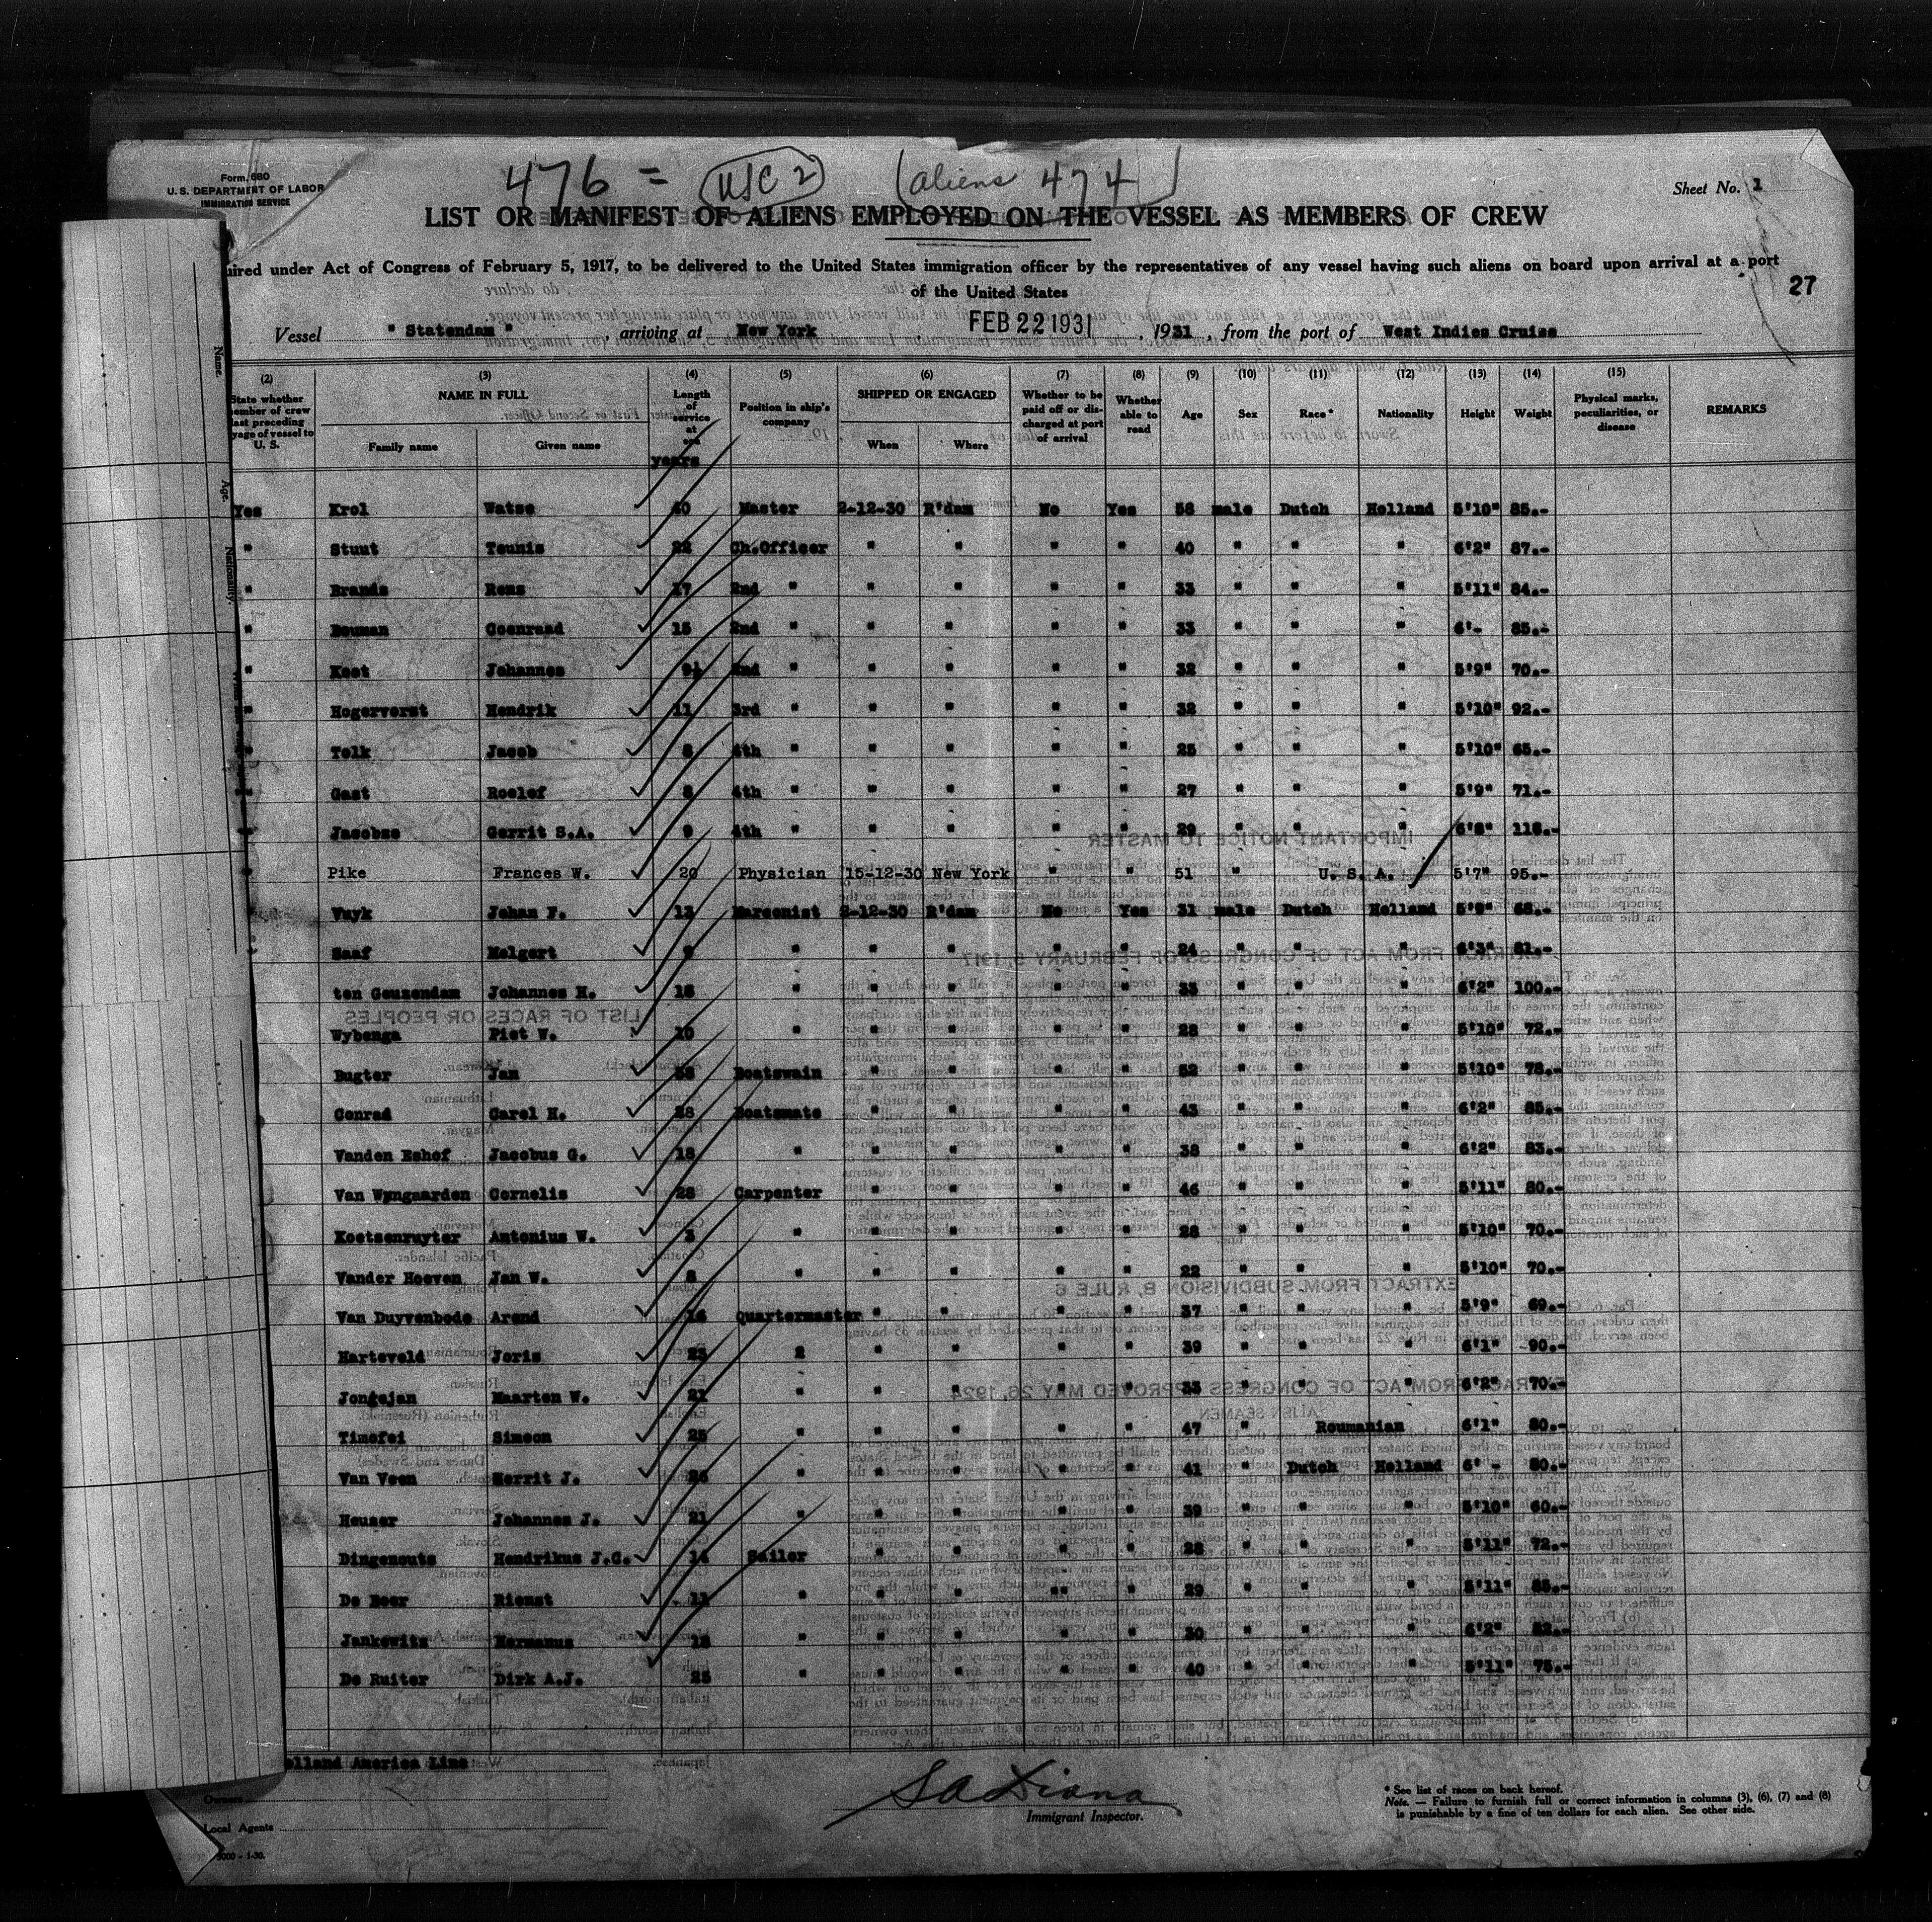 476 = USC 2 (aliens 474)
Form 680
U. S. DEPARTMENT OF LABOR
IMMIGRATION SERVICE
Sheet No. 1
LIST OR MANIFEST OF ALIENS EMPLOYED ON THE VESSEL AS MEMBERS OF CREW
uired under Act of Congress of February 5, 1917, to be delivered to the United States immigration officer by the representatives of any vessel having such aliens on board upon arrival at a port
of the United States
27
Vessel " Statendam " , arriving at New York FEB 22 1931 , 1931 , from the port of West Indies Cruise
(2) (3) (4) (5) (6) (7) (8) (9) (10) (11) (12) (13) (14) (15)
State whether member of crew last preceding yage of vessel to U. S. NAME IN FULL Length of service at sea Position in ship's company SHIPPED OR ENGAGED Whether to be paid off or discharged at port of arrival Whether able to read Age Sex Race* Nationality Height Weight Physical marks, peculiarities, or disease REMARKS
Family name Given name When Where
years
Yes Krol Watse 40 Master 2-12-30 R'dam No Yes 58 male Dutch Holland 5'10" 85.-
" Stuut Teunis 22 Ch.Officer " " " " 40 " " " 6'2" 87.-
" Brands Rens 17 2nd " " " " " 33 " " " 5'11" 84.-
" Bouman Coenraad 15 2nd " " " " " 33 " " " 6'- 85.-
" Keet Johannes 9½ 2nd " " " " " 32 " " " 5'9" 70.-
" Hogervorst Hendrik 11 3rd " " " " " 32 " " " 5'10" 92.-
" Tolk Jacob 8 4th " " " " " 25 " " " 5'10" 65.-
" Gast Roelof 8 4th " " " " " 27 " " " 5'9" 71.-
" Jacobse Gerrit S.A. 9 4th " " " " " 29 " " " 6'8" 118.-
Pike Frances W. 20 Physician 15-12-30 New York " " 51 " U. S. A. 5'7" 95.-
Vuyk Johan F. 13 Marconist 2-12-30 R'dam No Yes 31 male Dutch Holland 5'9" 68.-
Saaf Melgert " " " " " 24 " " " 6'3" 81.-
ten Geuzendam Johannes H. 15 " " " " " 33 " " " 6'2" 100.-
Wybenga Piet W. 10 " " " " " 28 " " " 5'10" 72.-
Bugter Jan 38 Boatswain " " " " 52 " " " 5'10" 78.-
Conrad Carel H. 28 Boatsmate " " " " 43 " " " 6'2" 85.-
Vanden Eshof Jacobus G. 18 " " " " " 38 " " " 6'2" 83.-
Van Wyngaarden Cornelis 28 Carpenter " " " " 46 " " " 5'11" 80.-
Koetsenruyter Antonius W. 3 " " " " " 28 " " " 5'10" 70.-
Vander Hoeven Jan W. 8 " " " " " 22 " " " 5'10" 70.-
Van Duyvenbode Arend 16 Quartermaster " " " " 37 " " " 5'9" 69.-
Harteveld Joris 23 2 " " " " 39 " " " 6'1" 90.-
Jongejan Maarten W. 21 " " " " " 35 " " " 6'2" 70.-
Timofei Simeon 25 " " " " " 47 " Roumanian 6'1" 80.-
Van Veen Gerrit J. 26 " " " " " 41 " Dutch Holland 6' - 80.-
Heuser Johannes J. 21 " " " " " 39 " " " 5'10" 60.-
Dingenouts Hendrikus J.C. 14 Sailor " " " " 28 " " " 5'11" 72.-
De Boer Rienst 11 " " " " " 29 " " " 5'11" 85.-
Jankowitz Hermanus 12 " " " " " 30 " " " 6'2" 82.-
De Ruiter Dirk A.J. 25 " " " " " 40 " " " 5'11" 75.-
olland America Line
Owners
Local Agents
Immigrant Inspector.
* See list of races on back hereof.
Note. — Failure to furnish full or correct information in columns (3), (6), (7) and (8)
is punishable by a fine of ten dollars for each alien. See other side.